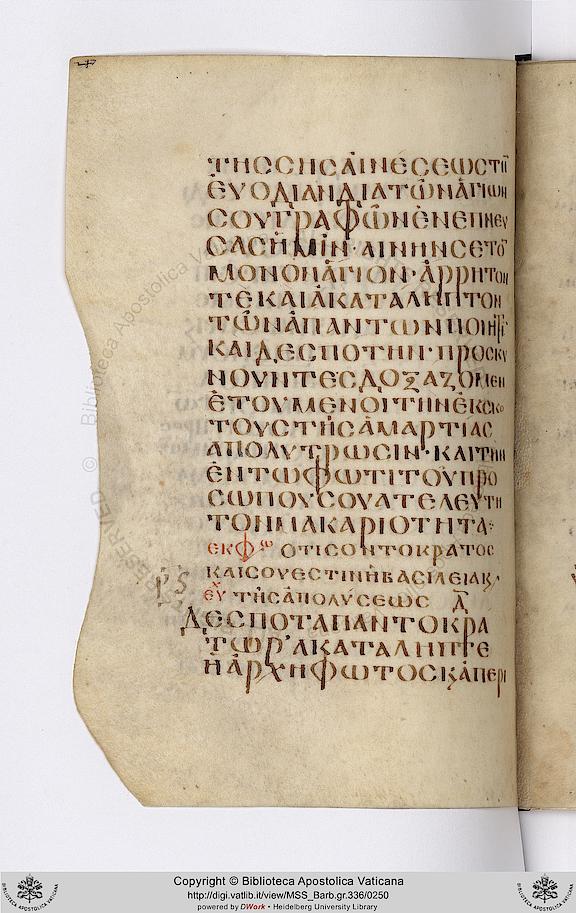 ΤΗϹ ϹΗϹ ΑΙΝΕϹΕΩϹ ΤῊ
ΕΥΟΔΙΑΝ ΔΙΑ ΤΩΝ ΑΓΙΩΝ
ϹΟΥ ΓΡΑΦΩΝ ΕΝΕΠΝΕΥ
ϹΑϹ ΗΜΙΝ· ΑΙΝΗΝ ϹΕ ΤΟ
ΜΟΝΟΝ ΑΓΙΟΝ· ΑΡΡΗΤΟΝ
ΤΕ ΚΑΙ ΑΚΑΤΑΛΗΠΤΟΝ
ΤΩΝ ΑΠΑΝΤΩΝ ΠΟΙΗΤΗ
ΚΑΙ ΔΕϹΠΟΤΗΝ· ΠΡΟϹΚΥ
ΝΟΥΝΤΕϹ ΔΟΞΑΖΟΜΕΝ
ΕΤΟΥΜΕΝΟΙ ΤΗΝ ΕΚ ϹΚΟ
ΤΟΥϹ ΤΗϹ ΑΜΑΡΤΙΑϹ
ΑΠΟΛΥΤΡΩϹΙΝ· ΚΑΙ ΤΗΝ
ΕΝ ΤΩ ΦΩΤΙ ΤΟΥ ΠΡΟ
ϹΩΠΟΥ ϹΟΥ ΑΤΕΛΕΥΤΗ
ΤΟΝ ΜΑΚΑΡΙΟΤΗΤΑ:
ΕΚΦω ΟΤΙ ϹΟΝ ΤΟ ΚΡΑΤΟϹ
ΚΑΙ ϹΟΥ ΕϹΤΙΝ Η ΒΑϹΙΛΕΙΑ Κ,
ΕΥΧ ΤΗϹ ΑΠΟΛΥϹΕΩϹ Δ
ΔΕϹΠΟΤΑ ΠΑΝΤΟΚΡΑ
ΤΩΡ' ΑΚΑΤΑΛΗΠΤΕ
Η ΑΡΧΗ ΦΩΤΟϹ Κ ΑΠΕΡΙ
© Biblioteca Apostolica Vaticana
Copyright © Biblioteca Apostolica Vaticana
http://digi.vatlib.it/view/MSS_Barb.gr.336/0250
powered by DWork • Heidelberg University Library